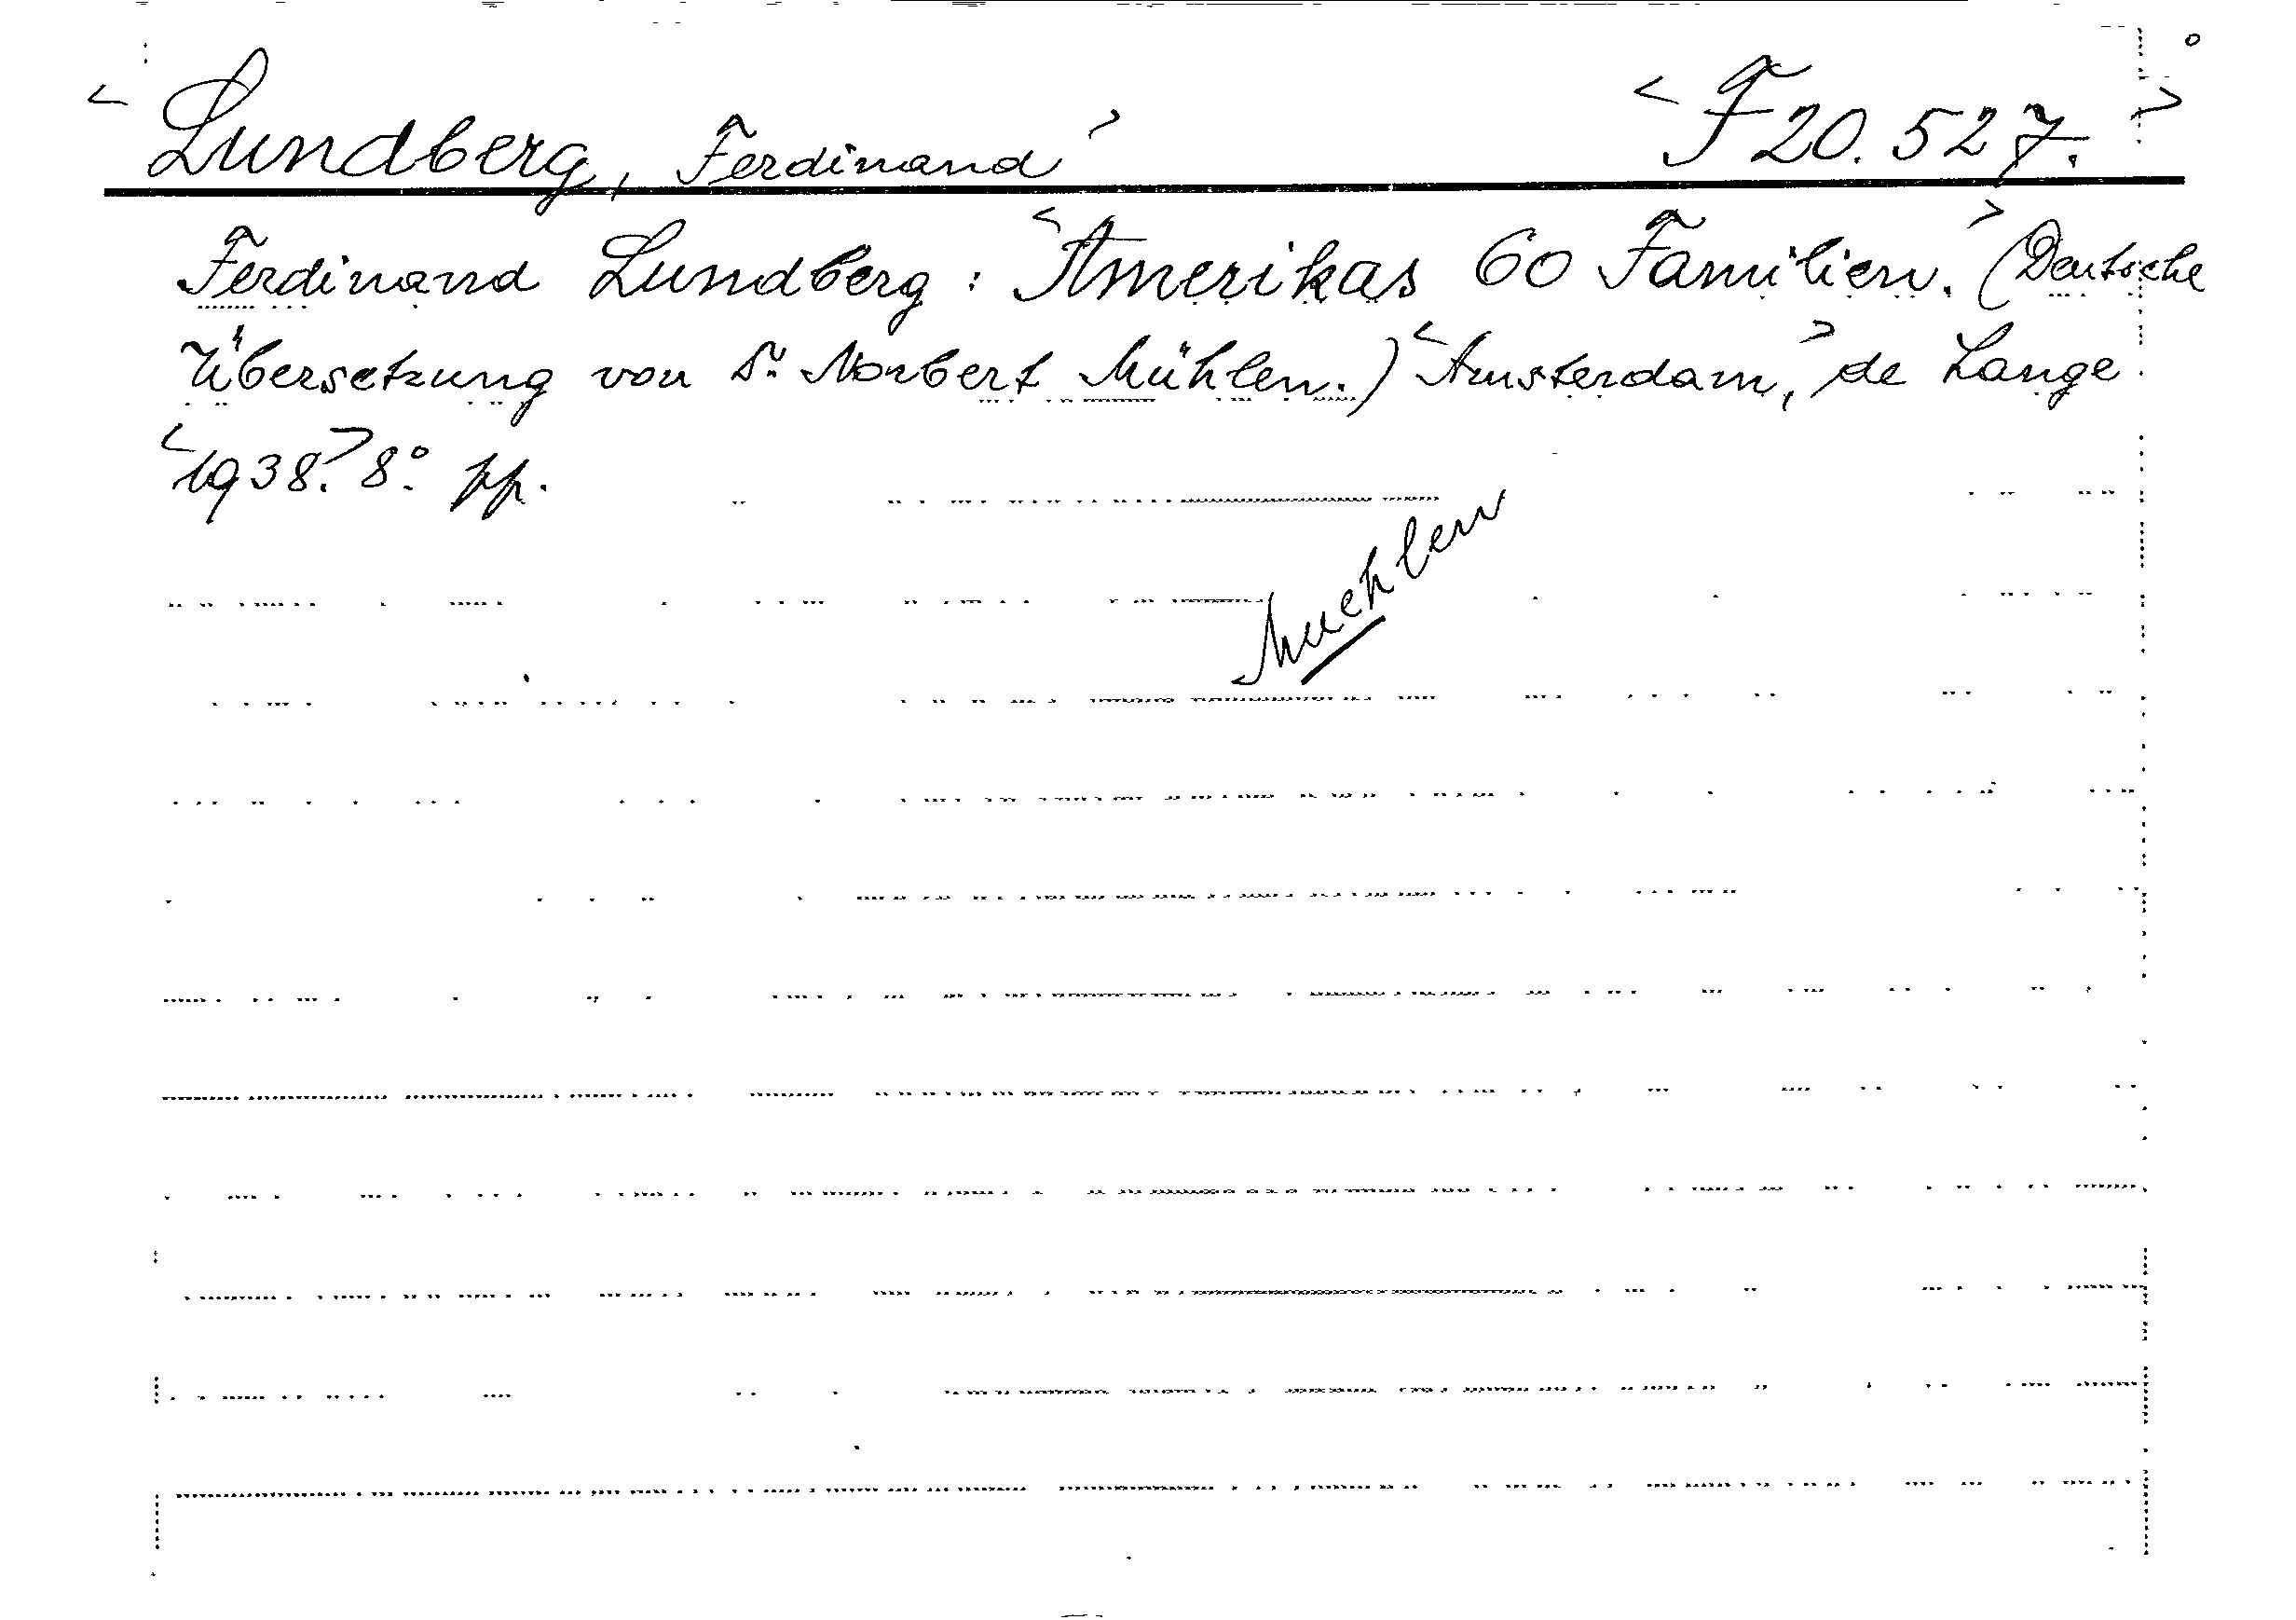 <Lundberg, Ferdinand> <F 20.527.>
Ferdinand Lundberg: <Amerikas 60 Familien.> (Deutsche
Übersetzung von Dr. Norbert Mühlen.) <Amsterdam,> de Lange
<1938.> 8°. pp.
Muehlen